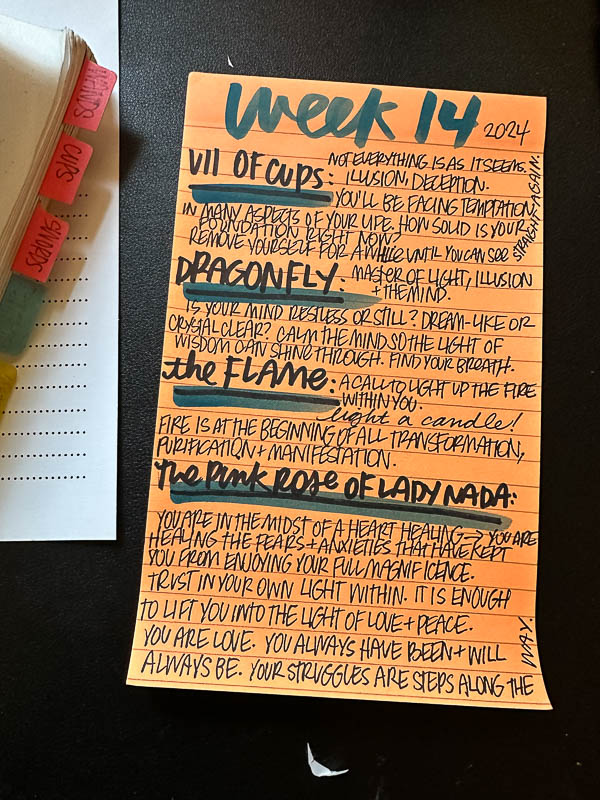 WANDS
CUPS
SWORDS
Week 14 2024
VII OF CUPS: NOT EVERYTHING IS AS IT SEEMS.
ILLUSION, DECEPTION.
YOU'LL BE FACING TEMPTATION,
IN MANY ASPECTS OF YOUR LIFE. HOW SOLID IS YOUR
FOUNDATION RIGHT NOW?
REMOVE YOURSELF FOR A WHILE UNTIL YOU CAN SEE
STRAIGHT AGAIN.
DRAGONFLY: MASTER OF LIGHT, ILLUSION
+ THE MIND.
IS YOUR MIND RESTLESS OR STILL? DREAM-LIKE OR
CRYSTAL CLEAR? CALM THE MIND SO THE LIGHT OF
WISDOM CAN SHINE THROUGH. FIND YOUR BREATH.
the FLAME: A CALL TO LIGHT UP THE FIRE
WITHIN YOU.
light a candle!
FIRE IS AT THE BEGINNING OF ALL TRANSFORMATION,
PURIFICATION + MANIFESTATION.
The Pink Rose OF LADY NADA:
YOU ARE IN THE MIDST OF A HEART HEALING → YOU ARE
HEALING THE FEARS + ANXIETIES THAT HAVE KEPT
YOU FROM ENJOYING YOUR FULL MAGNIFICENCE.
TRUST IN YOUR OWN LIGHT WITHIN. IT IS ENOUGH
TO LIFT YOU INTO THE LIGHT OF LOVE + PEACE.
YOU ARE LOVE. YOU ALWAYS HAVE BEEN + WILL
ALWAYS BE. YOUR STRUGGLES ARE STEPS ALONG THE
WAY.